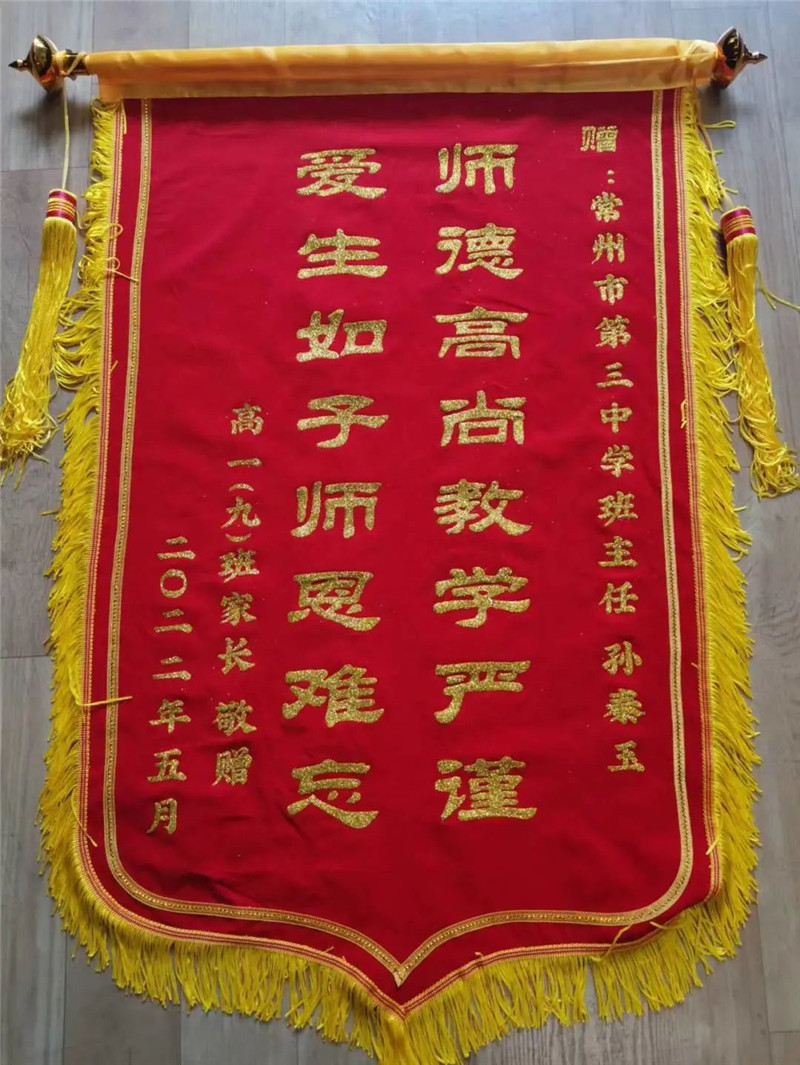 赠：常州市第三中学班主任 孙泰玉
师德高尚教学严谨
爱生如子师恩难忘
高一（九）班家长 敬赠
二〇二二年五月